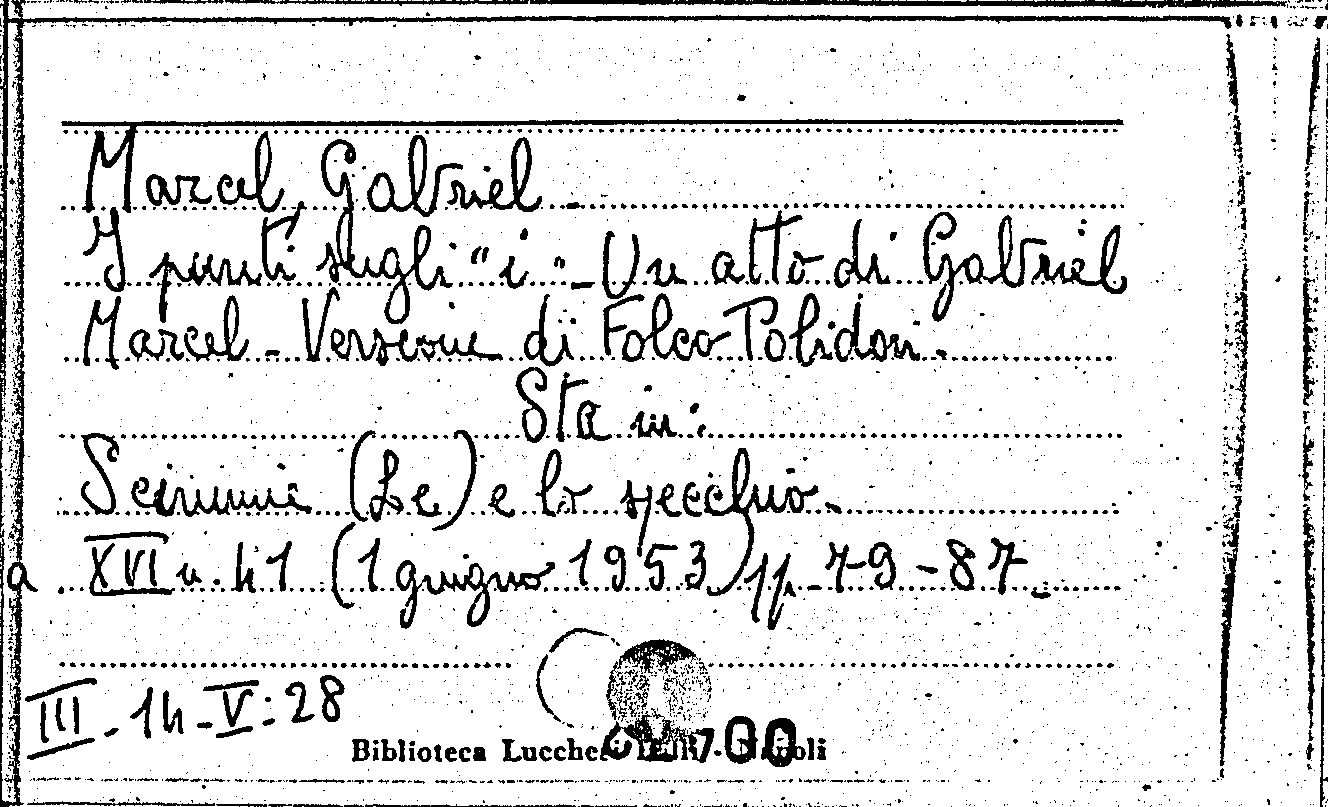 Marcel, Gabriel -
I punti sugli "i" - Un atto di Gabriel
Marcel - Versione di Folco Polidori.
Sta in:
Scimmie (Le) e lo specchio.
a XVI n. 41 (1 giugno 1953) pp. 79-87.
III - 14 - V: 28
Biblioteca Lucchesi